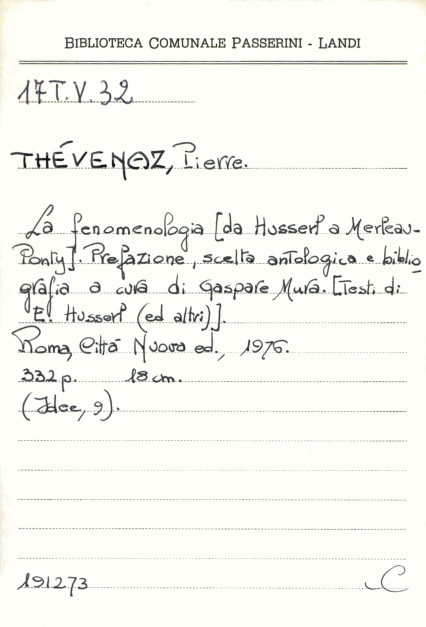 BIBLIOTECA COMUNALE PASSERINI - LANDI
17T.V.32
THÉVENAZ, Pierre.
La fenomenologia [da Husserl a Merleau-
Ponty]. Prefazione, scelta antologica e biblio
grafia a cura di Gaspare Mura. [Testi di
E. Husserl (ed altri)].
Roma, Città Nuova ed., 1976.
332 p. 18 cm.
(Idee, 9).
191273 C